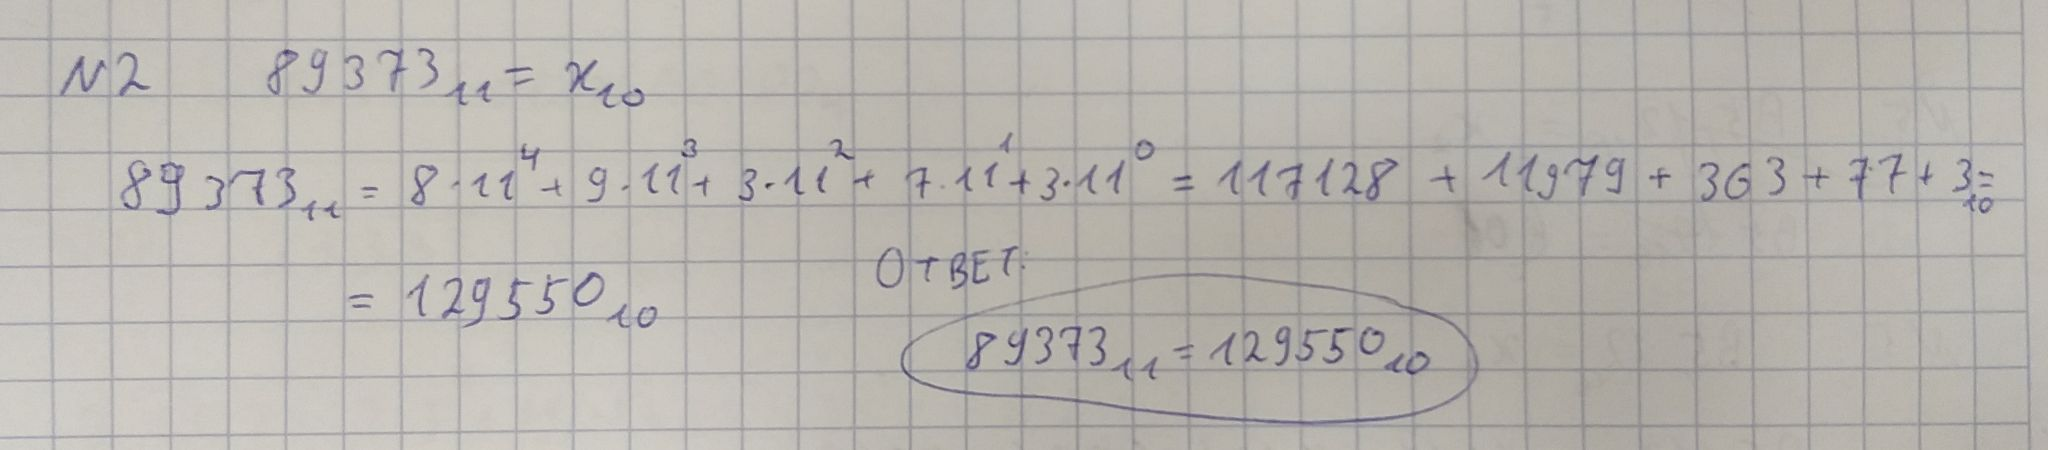 N2 89373₁₁ = x₁₀
89373₁₁ = 8·11⁴ + 9·11³ + 3·11² + 7·11¹ + 3·11⁰ = 117128 + 11979 + 363 + 77 + 3₁₀ =
= 129550₁₀
ОТВЕТ:
89373₁₁ = 129550₁₀